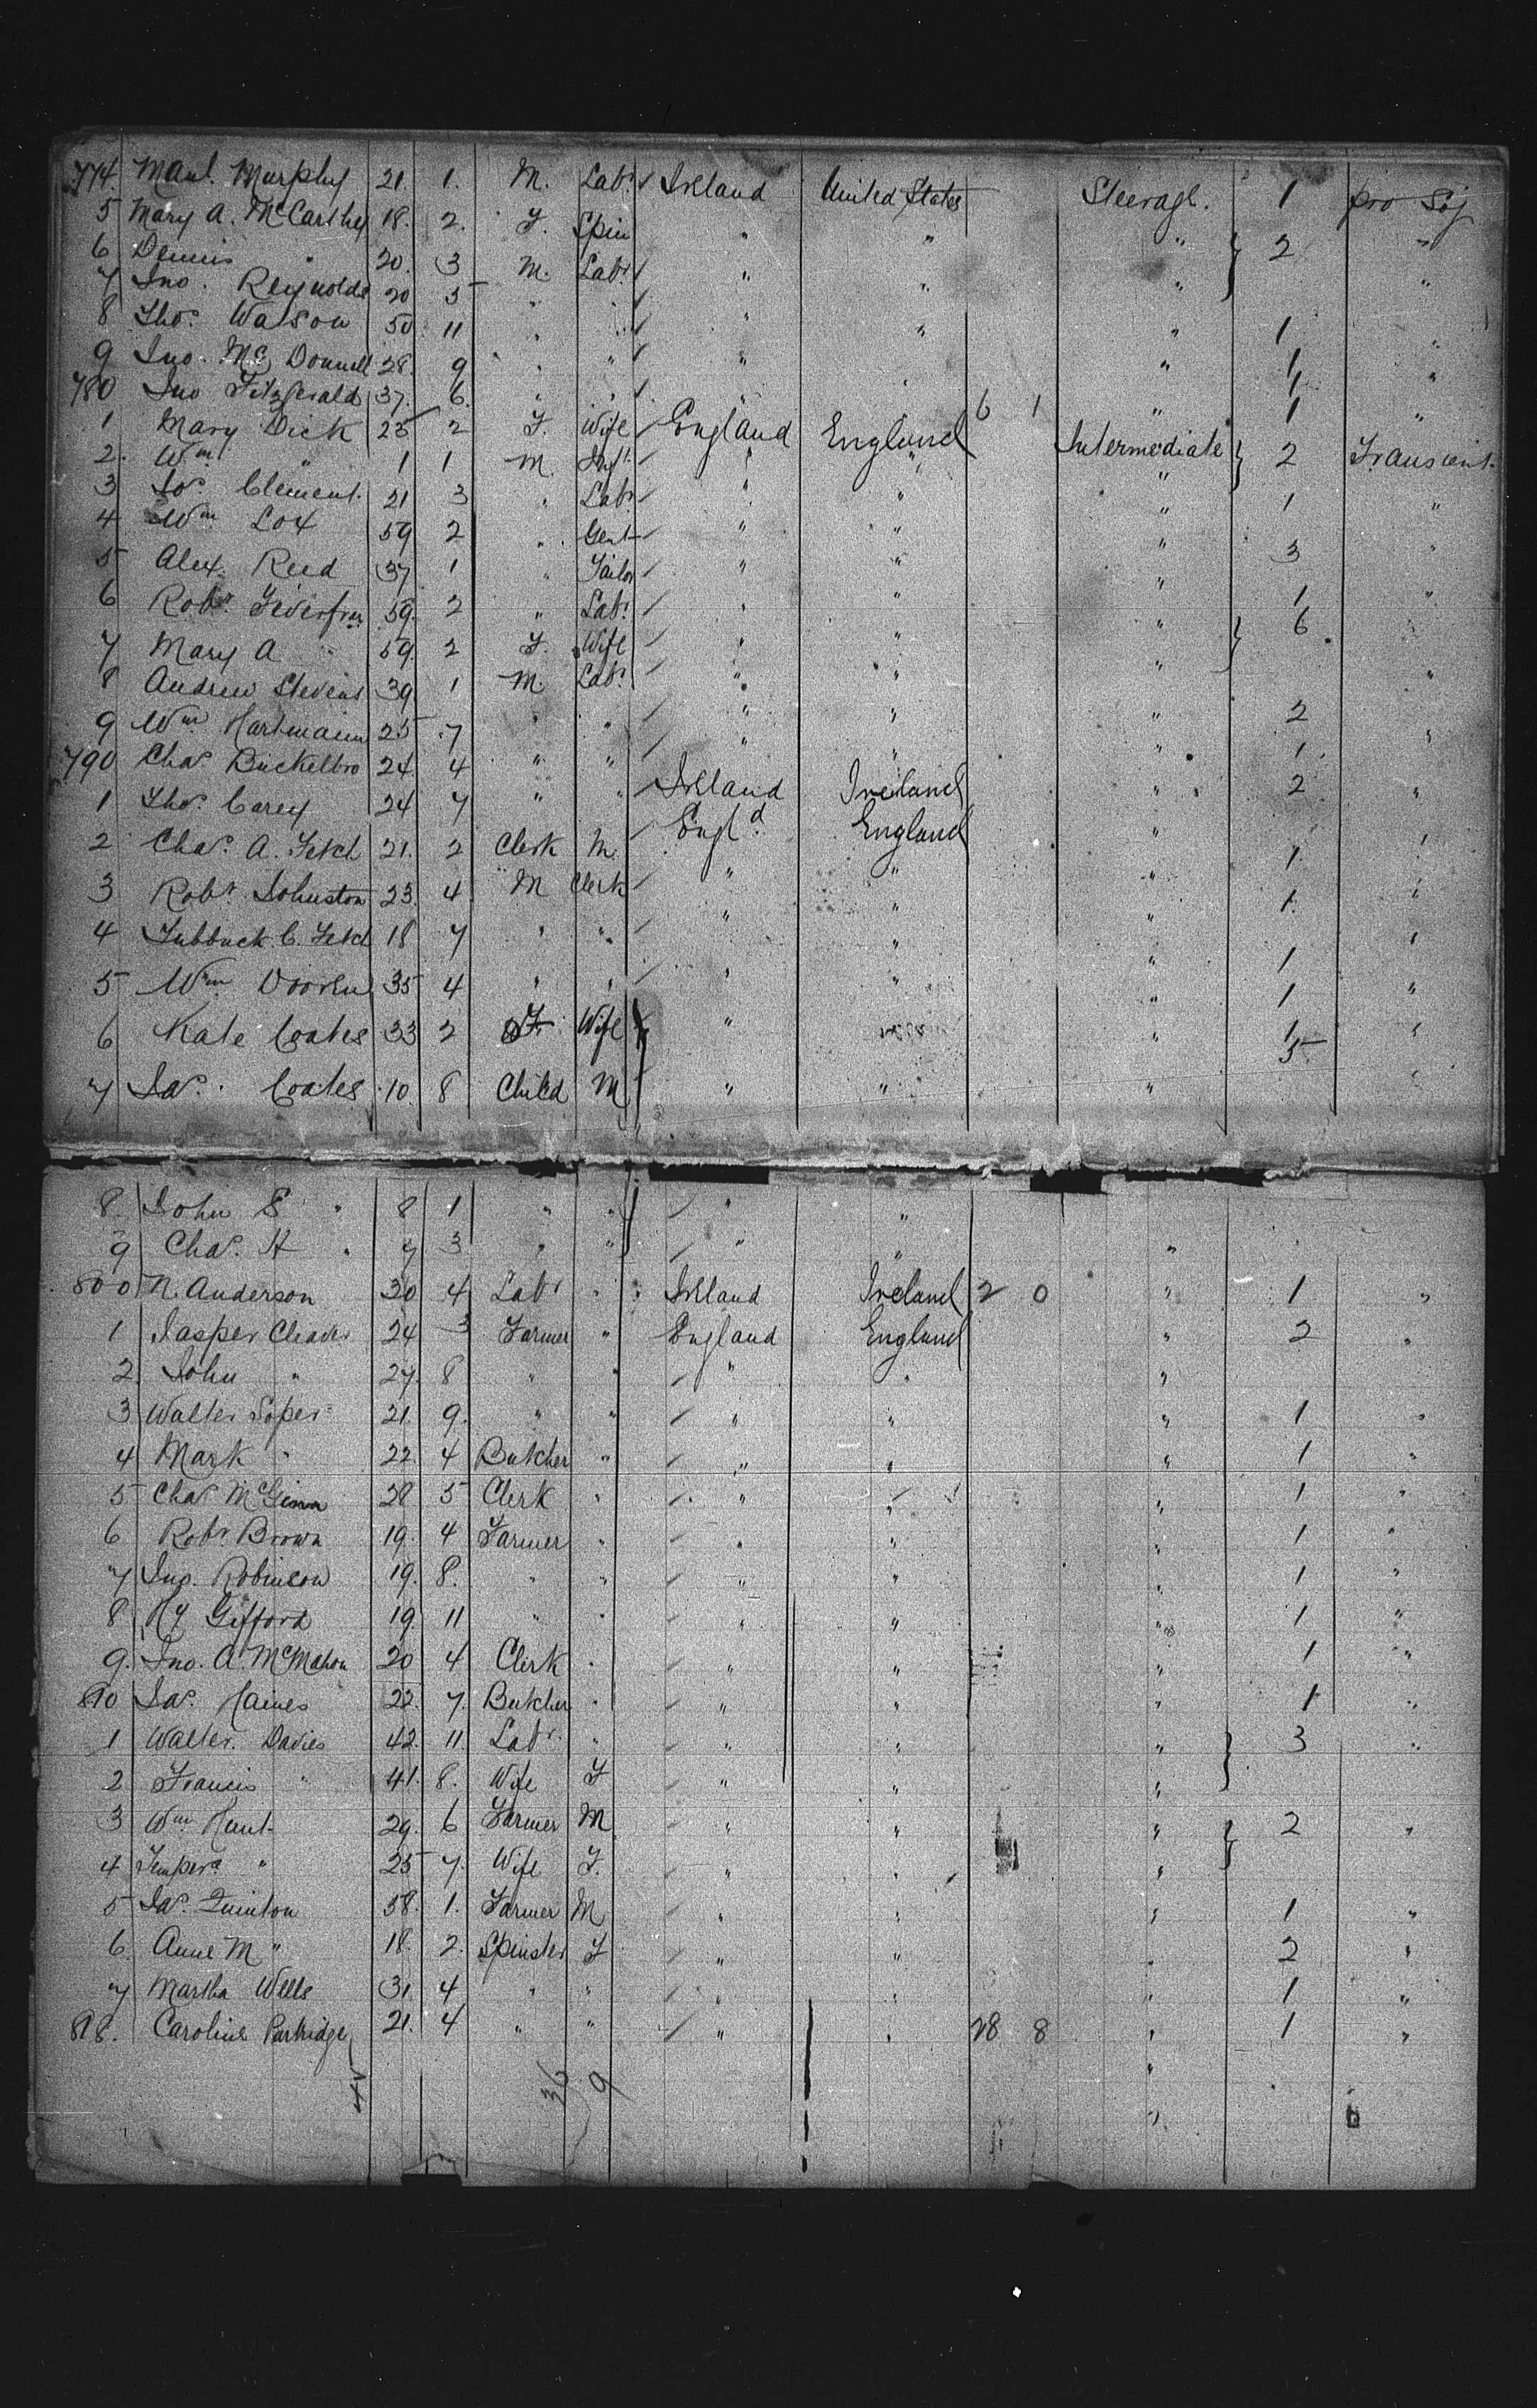 774. Manl. Murphy 21. 1. M. Labr. Ireland United States Steerage. 1 pro Soj
5 Mary A. McCarthy 18. 2. F. Spin " " " } 2 "
6 Dennis " 20. 3 M. Labr. " " " "
7 Jno. Reynolds 20 5 " " " " " 1 "
8 Thos. Watson 50 11 " " " " " 1 "
9 Jno. McDonnell 28. 9 " " " " " 1 "
780 Jno Fitzgerald 37. 6. " " " " 6 1 " 1 "
1 Mary Dick 25 2 F. Wife England England Intermediate } 2 Transient
2. Wm. " 1 1 M. Inft. " " "
3 Jos. Clement 21 3 " Labr " " " 1 "
4 Wm Cox 59 2 " Gent " " " 3 "
5 Alex. Reed 37 1 " Tailor " " " 1 "
6 Robt. 59. 2 " Labr. " " " } 6 "
7 Mary A " 59. 2 F. Wife " " "
8 Andrew Stevens 39 1 M Labr. " " " 2 "
9 Wm. Hartmann 25 7 " " " " " 1 "
790 Chas. 24 4 " " " " " 2 "
1 Thos. Carey 24 7 " " Ireland Ireland " "
2 Chas. A. 21. 2 Clerk M. Engld. England " 1 "
3 Robt. Johnston 23. 4 M Clerk " " " 1 "
4 C. 18 7 " " " " " 1 "
5 Wm 35 4 " " " " " 1 "
6 Kate Coates 33 2 F. Wife " " " 5 "
7 Jas. Coates 10. 8 Child M " " " "
8. John E " 8 1 " " " "
9 Chas. H " 7 3 " " " " "
800 N. Anderson 30 4 Labr " Ireland Ireland 2 0 " 1 "
1 Jasper Cleaver 24 3 Farmer " England England " 2 "
2. John " 27. 8 " " " " "
3 Walter Soper 21. 9. " " " " " 1 "
4 Mark " 22. 4 Butcher " " " " 1 "
5 Chas McGinn 28 5 Clerk " " " " 1 "
6 Robt. Brown 19. 4 Farmer " " " " 1 "
7 Jno. Robinson 19. 8. " " " " " 1 "
8 Hy Gifford 19. 11 " " " " " 1 "
9. Jno. A. McMahon 20 4 Clerk " " " " 1 "
810 Jas. Haines 22. 7. Butcher " " " " 1 "
1 Walter. Davies 42. 11. Labr. " " " " } 3 "
2 Francis " 41. 8. Wife F " " "
3 Wm Hunt 29. 6 Farmer M " " " } 2 "
4 Tempera " 25 7. Wife F. " " "
5 Jas. Quinton 58. 1. Farmer M " " " 1 "
6. Anne M " 18. 2. Spinster F " " " 2 "
7 Martha Wells 31. 4 " " " " " 1 "
818. Caroline Partridge 21. 4 " " " " 28 8 " 1 "
36 9 "
"